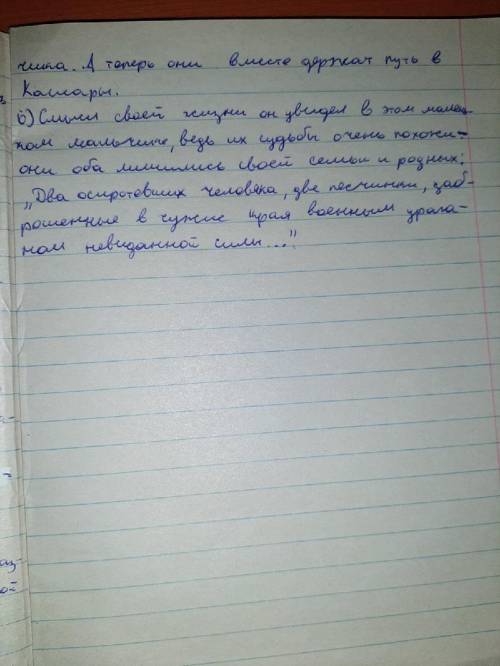 чика. А теперь они вместе держат путь в
Кашары.
6) Смысл своей жизни он увидел в этом малень-
ком мальчике, ведь их судьбы очень похожи-
они оба лишились своей семьи и родных.
„Два осиротевших человека, две песчинки, заб-
рошенные в чужие края военным урага-
ном невиданной силы..."